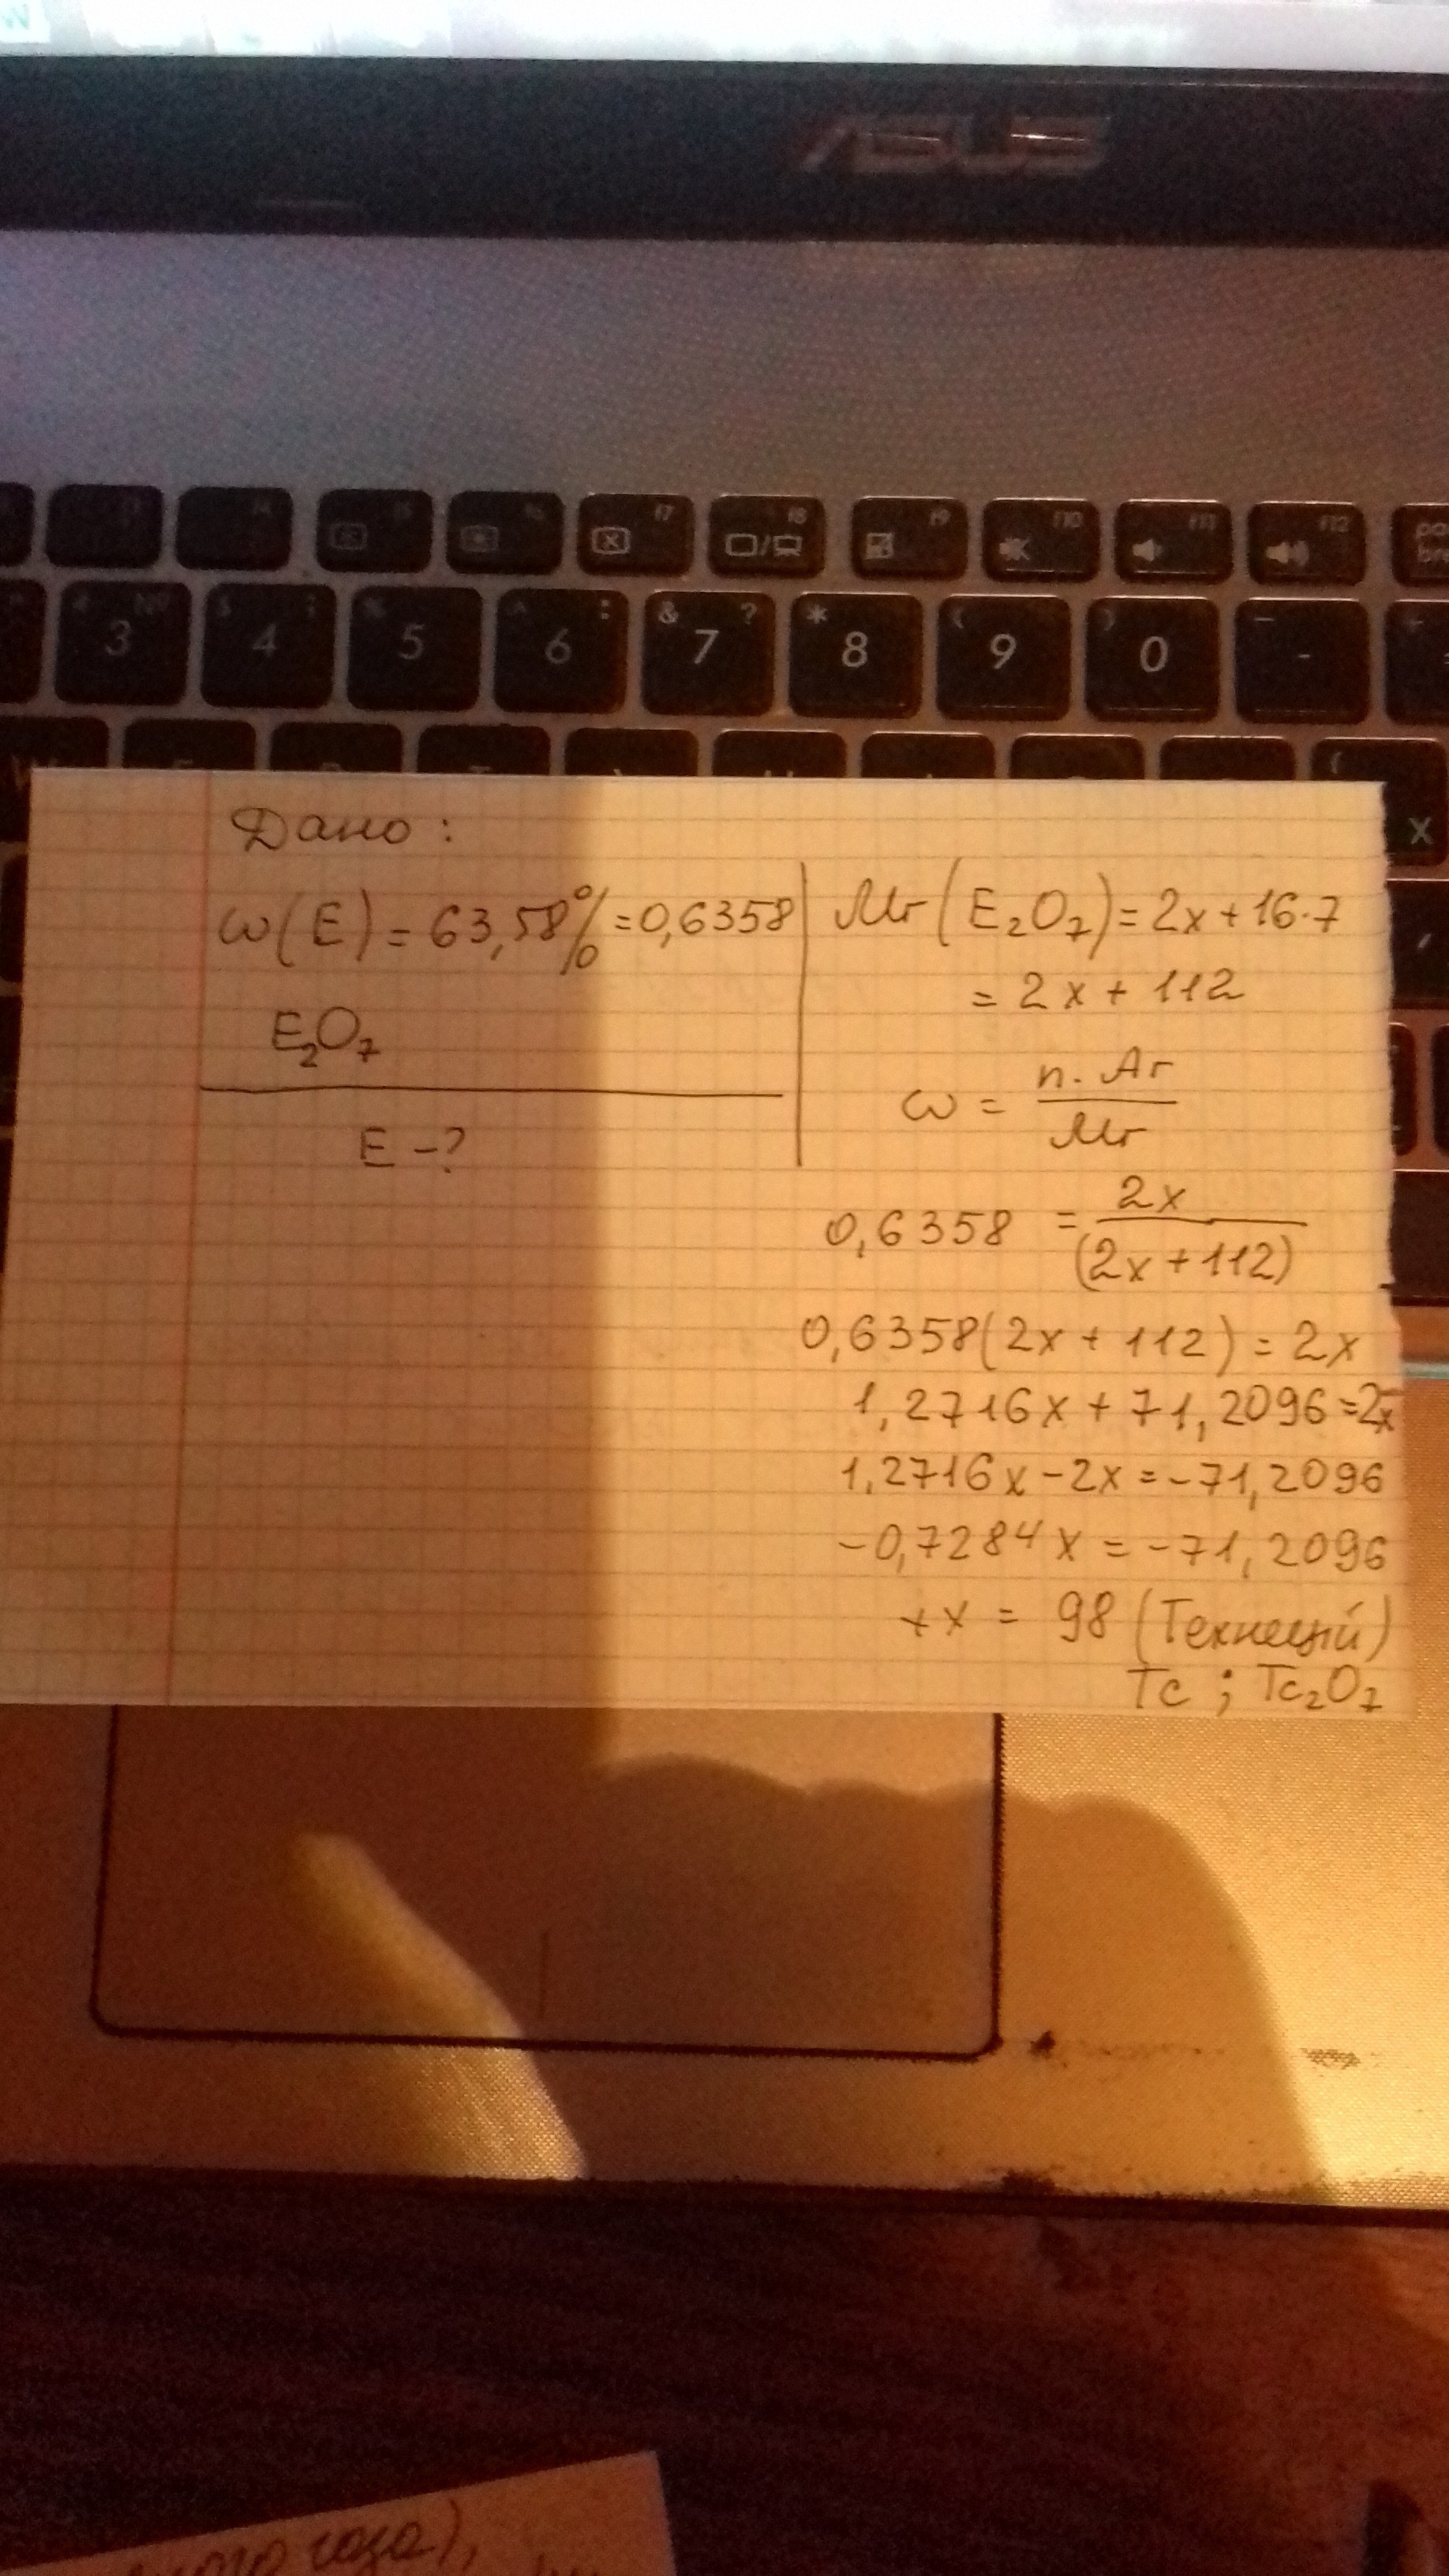 ASUS
F7
F8
F9
F10
F11
F12
3 4 5 6 & 7 ? * 8 ( 9 ) 0 -
X
Дано:
ω(E) = 63,58% = 0,6358
E₂O₇
E - ?
Mr(E₂O₇) = 2x + 16·7
= 2x + 112
ω = n·Ar / Mr
0,6358 = 2x / (2x + 112)
0,6358(2x + 112) = 2x
1,2716x + 71,2096 = 2x
1,2716x - 2x = -71,2096
-0,7284x = -71,2096
+x = 98 (Технеций)
Tc ; Tc₂O₇
газа),